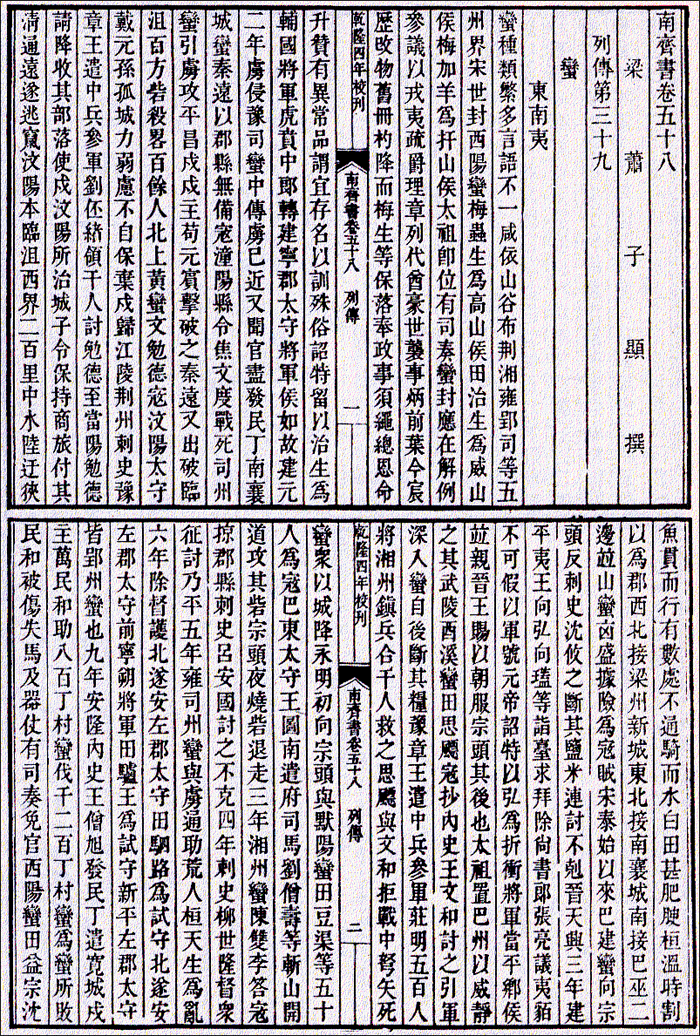 南齊書卷五十八
梁蕭子顯撰
列傳第三十九
蠻
東南夷
蠻種類繁多言語不一咸依山谷布荆湘雍郢司等五
州界宋世封西陽蠻梅蟲生爲高山侯田治生爲威山
侯梅加羊爲扞山侯太祖卽位有司奏蠻封應在解例
參議以戎夷疏爵理章列代酋豪世襲事炳前葉今宸
歷改物舊冊杓降而梅生等保落奉政事須繩總恩命
升贊有異常品謂宜存名以訓殊俗詔特留以治生爲
輔國將軍虎賁中郎轉建寧郡太守將軍侯如故建元
二年虜侵豫司蠻中傳虜已近又聞官盡發民丁南襄
城蠻秦遠以郡縣無備寇潼陽縣令焦文度戰死司州
蠻引虜攻平昌戍戍主苟元賓擊破之秦遠又出破臨
沮百方砦殺畧百餘人北上黃蠻文勉德寇汶陽太守
戴元孫孤城力弱慮不自保棄戍歸江陵荆州刺史豫
章王遣中兵參軍劉伾緒領千人討勉德至當陽勉德
請降收其部落使戍汶陽所治城子令保持商旅付其
淸通遠遂逃竄汶陽本臨沮西界二百里中水陸迂狹
乾隆四年校刊
南齊書卷五十八 列傳
一
魚貫而行有數處不通騎而水白田甚肥腴桓溫時割
以爲郡西北接梁州新城東北接南襄城南接巴巫二
邊竝山蠻凶盛據險爲寇賊宋泰始以來巴建蠻向宗
頭反刺史沈攸之斷其鹽米連討不剋晉天興三年建
平夷王向弘向瓃等詣臺求拜除尙書郎張亮議夷貊
不可假以軍號元帝詔特以弘爲折衝將軍當平鄉侯
竝親晉王賜以朝服宗頭其後也太祖置巴州以威靜
之其武陵酉溪蠻田思飄寇抄內史王文和討之引軍
深入蠻自後斷其糧豫章王遣中兵參軍莊明五百人
將湘州鎮兵合千人救之思飄與文和拒戰中弩矢死
蠻衆以城降永明初向宗頭與默陽蠻田豆渠等五千
人爲寇巴東太守王圖南遣府司馬劉僧壽等斬山開
道攻其砦宗頭夜燒砦退走三年湘州蠻陳雙李答寇
掠郡縣刺史呂安國討之不克四年刺史柳世隆督衆
征討乃平五年雍司州蠻與虜通助荒人桓天生爲亂
六年除督護北遂安左郡太守田駟路爲試守北遂安
左郡太守前寧朔將軍田驢王爲試守新平左郡太守
皆郢州蠻也九年安隆內史王僧旭發民丁遣寬城戍
主萬民和助八百丁村蠻伐千二百丁村蠻爲蠻所敗
民和被傷失馬及器仗有司奏免官西陽蠻田益宗沈
乾隆四年校刊
南齊書卷五十八 列傳
二